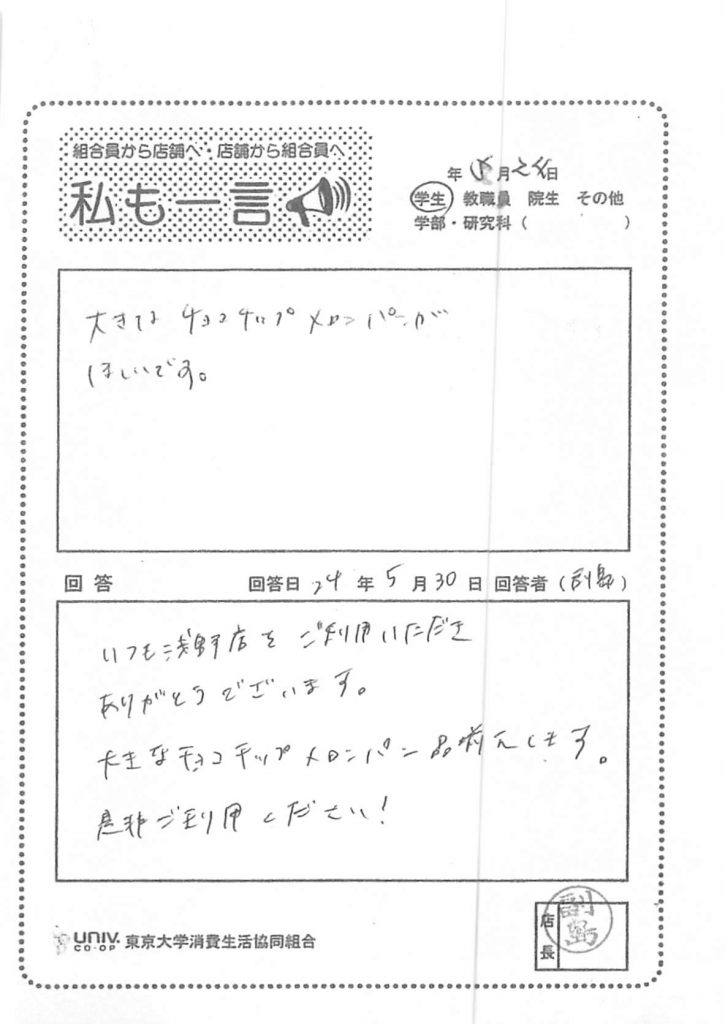 組合員から店舗へ・店舗から組合員へ
私も一言
年 5月24日
学生 教職員 院生 その他
学部・研究科( )
大きな チョコチップ メロンパンが
ほしいです。
回答 回答日 24年5月30日 回答者(副島)
いつも浅野店を ご利用いただき
ありがとうございます。
大きなチョコチップメロンパン品揃えします。
是非ご利用ください!
UNIV. CO-OP 東京大学消費生活協同組合
店長
副島